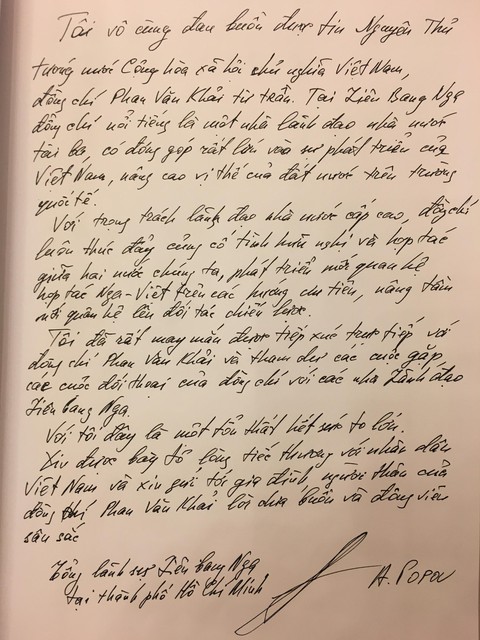 Tôi vô cùng đau buồn được tin Nguyên Thủ
tướng nước Cộng hòa xã hội chủ nghĩa Việt Nam,
đồng chí Phan Văn Khải từ trần. Tại Liên Bang Nga
đồng chí nổi tiếng là một nhà lãnh đạo nhà nước
tài ba, có đóng góp rất lớn vào sự phát triển của
Việt Nam, nâng cao vị thế của đất nước trên trường
quốc tế.
Với trọng trách lãnh đạo nhà nước cấp cao, đồng chí
luôn thúc đẩy củng cố tình hữu nghị và hợp tác
giữa hai nước chúng ta, phát triển mối quan hệ
hợp tác Nga-Việt trên các hướng ưu tiên, nâng tầm
mối quan hệ lên đối tác chiến lược.
Tôi đã rất may mắn được tiếp xúc trực tiếp với
đồng chí Phan Văn Khải và tham dự các cuộc gặp,
các cuộc đối thoại của đồng chí với các nhà lãnh đạo
Liên bang Nga.
Với tôi đây là một tổn thất hết sức to lớn.
Xin được bày tỏ lòng tiếc thương với nhân dân
Việt Nam và xin gửi tới gia đình, người thân của
đồng chí Phan Văn Khải lời chia buồn và động viên
sâu sắc
Tổng lãnh sự Liên bang Nga
tại thành phố Hồ Chí Minh
A. POPOV